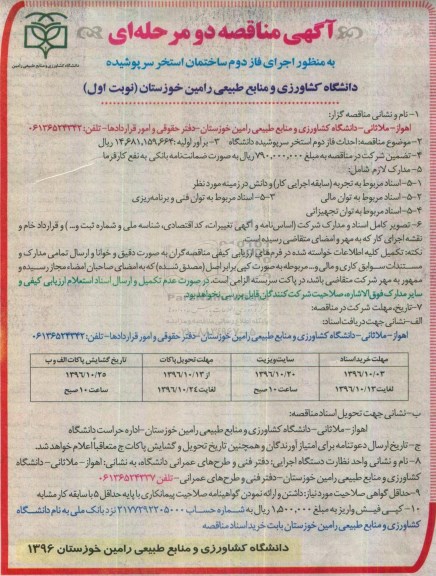 آگهی مناقصه دو مرحله‌ای
به منظور اجرای فاز دوم ساختمان استخر سرپوشیده
دانشگاه کشاورزی و منابع طبیعی رامین خوزستان (نوبت اول)
دانشگاه کشاورزی و منابع طبیعی رامین
۱- نام و نشانی مناقصه گزار:
اهواز- ملاثانی- دانشگاه کشاورزی و منابع طبیعی رامین خوزستان- دفتر حقوقی و امور قراردادها- تلفن: ۰۶۱۳۶۵۲۴۳۴۲
۲- موضوع مناقصه: احداث فاز دوم استخر سرپوشیده دانشگاه ۳- برآورد اولیه: ۱۴,۶۸۱,۱۵۹,۶۶۴ ریال
۴- تضمین شرکت در مناقصه به مبلغ ۷۹۰,۰۰۰,۰۰۰ ریال به صورت ضمانتنامه بانکی به نفع کارفرما
۵- مدارک لازم شامل:
۱-۵- اسناد مربوط به تجربه (سابقه اجرایی کار) و دانش در زمینه مورد نظر
۲-۵- اسناد مربوط به توان مالی ۳-۵- اسناد مربوط به توان فنی و برنامه‌ریزی
۴-۵- اسناد مربوط به توان تجهیزاتی
۶- تصویر کامل اسناد و مدارک شرکت (اساس‌نامه و آگهی تغییرات، کد اقتصادی، شناسه ملی و شماره ثبت و...) و قرارداد خام و
نقشه اجرای کار که به مهر و امضای متقاضی رسیده است.
نکته: تکمیل کلیه اطلاعات خواسته شده در فرم‌های ارزیابی کیفی مناقصه‌گران به صورت دقیق و خوانا و ارسال تمامی مدارک و
مستندات سوابق کاری و مالی و... مربوطه به صورت کپی برابر اصل (مصدق شده) که به امضای صاحبان امضاء مجاز رسیده و
ممهور به مهر شرکت متقاضی باشد، در پاکت سربسته الزامی است. در صورت عدم تکمیل و ارسال اسناد استعلام ارزیابی کیفی و
سایر مدارک فوق‌الاشاره، صلاحیت شرکت کنندگان قابل بررسی نخواهد بود.
۷- تاریخ، مهلت شرکت در مناقصه:
الف- نشانی جهت دریافت اسناد:
اهواز- ملاثانی- دانشگاه کشاورزی و منابع طبیعی رامین خوزستان- دفتر حقوقی و امور قراردادها- تلفن: ۰۶۱۳۶۵۲۴۳۴۲
مهلت خرید اسناد سایت ویزیت مهلت تحویل پاکات تاریخ گشایش پاکات الف و ب
۱۳۹۶/۱۰/۰۳ ۱۳۹۶/۱۰/۲۰ از ۱۳۹۶/۱۰/۱۳ ۱۳۹۶/۱۰/۲۵
لغایت ۱۳۹۶/۱۰/۱۳ ساعت ۱۰ صبح لغایت ۱۳۹۶/۱۰/۲۴ ساعت ۱۰ صبح
ب- نشانی جهت تحویل اسناد مناقصه:
اهواز- ملاثانی- دانشگاه کشاورزی و منابع طبیعی رامین خوزستان- اداره حراست دانشگاه
ج- تاریخ ارسال دعوتنامه برای امتیاز آورندگان و همچنین تاریخ تحویل و گشایش پاکات ج متعاقباً اعلام خواهد شد.
۸- نام و نشانی واحد نظارت دستگاه اجرایی: دفتر فنی و طرح‌های عمرانی دانشگاه، به نشانی: اهواز- ملاثانی- دانشگاه
کشاورزی و منابع طبیعی رامین خوزستان- دفتر فنی و طرح‌های عمرانی- تلفن ۰۶۱۳۶۵۲۴۳۳۷
۹- حداقل گواهی صلاحیت مورد نیاز: داشتن و ارائه نمودن گواهینامه صلاحیت پیمانکاری با پایه حداقل ۵ با سابقه کار مشابه
۱۰- کپی فیش واریز به مبلغ ۱,۵۰۰,۰۰۰ ریال به شماره حساب ۲۱۷۷۲۹۲۲۰۵۰۰۰ نزد بانک ملی به نام دانشگاه
کشاورزی و منابع طبیعی رامین خوزستان بابت خرید اسناد مناقصه
دانشگاه کشاورزی و منابع طبیعی رامین خوزستان ۱۳۹۶